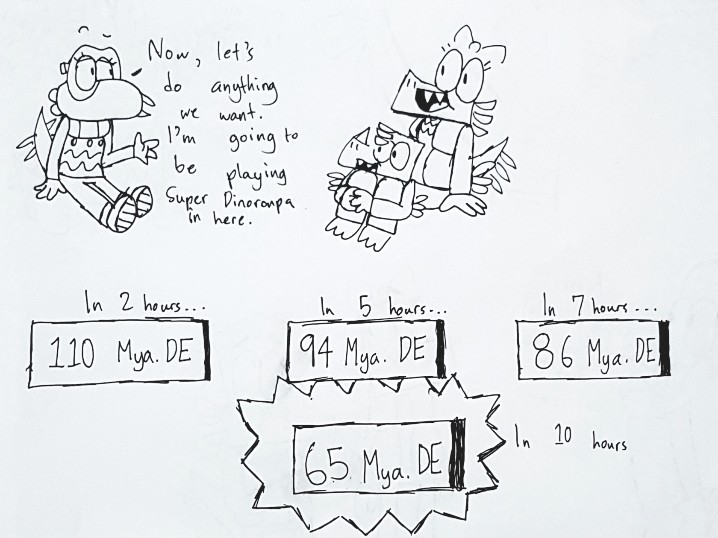 Now, let's
do anything
we want.
I'm going to
be playing
Super Dinoronpa
in here.
In 2 hours...
110 Mya. DE
In 5 hours...
94 Mya. DE
In 7 hours...
86 Mya. DE
65 Mya. DE
In 10 hours